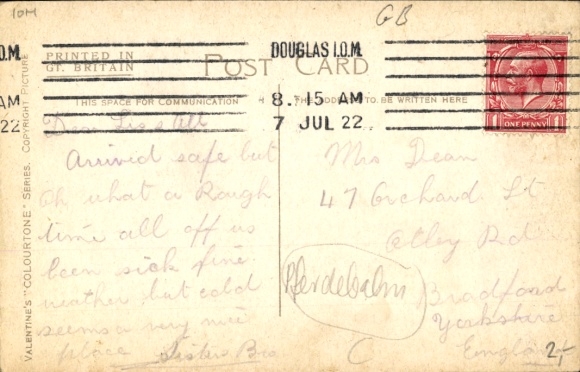 IOM
GB
DOUGLAS I.O.M.
8.15 AM
7 JUL 22
O.M.
AM
22
PRINTED IN
GT. BRITAIN
POST CARD
THIS SPACE FOR COMMUNICATION
THE ADDRESS TO BE WRITTEN HERE
ONE PENNY
VALENTINE'S "COLOURTONE" SERIES. COPYRIGHT PICTURE
Dear Sis & All
Arrived safe but
Oh what a Rough
time all off us
been sick fine
weather but cold
seems a very nice
place Sisters Bro
Mrs Dean
47 Orchard St
Otley Rd
Bradford
Yorkshire
England
Pferdebahn
C
2,-